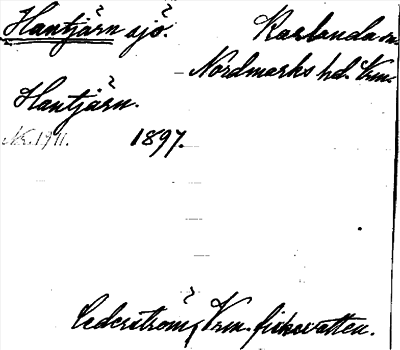 Hantjärn sjö.
Karlanda sn
Nordmarks hd. Vrm.
Hantjärn.
Nr. 1911. 1897.
Cederström, Vrm. fiskevatten.